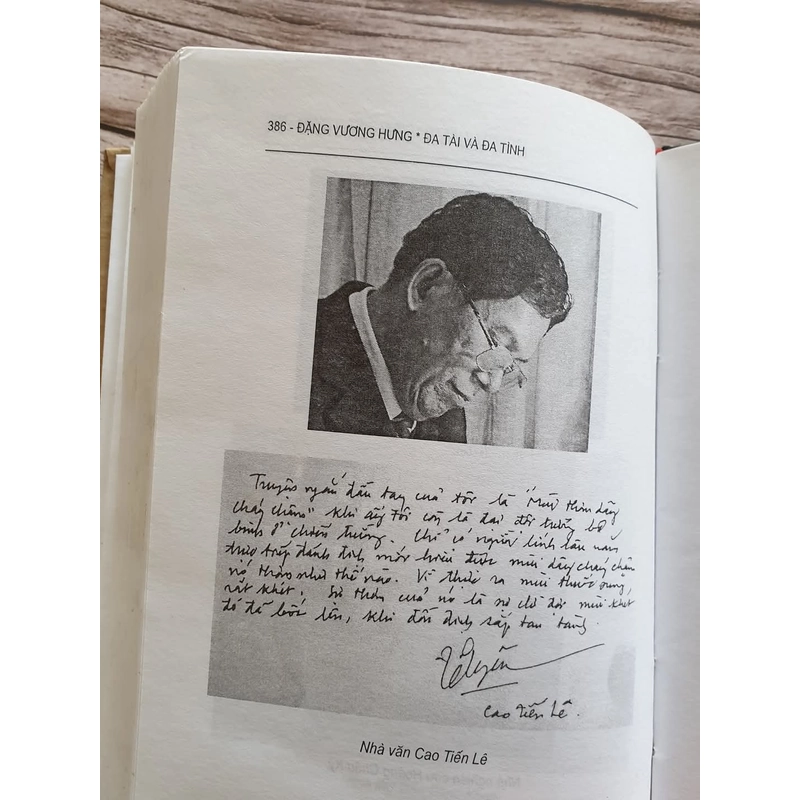 386 - ĐẶNG VƯƠNG HƯNG * ĐA TÀI VÀ ĐA TÌNH
Truyện ngắn đầu tay của tôi là "Mùi thơm dây
cháy chậm" khi ấy tôi còn là đại đội trưởng bộ
binh ở chiến trường. Chỉ có người lính lâu năm
trực tiếp đánh địch mới hiểu được mùi dây cháy chậm
nó thơm như thế nào. Vì thực ra mùi thuốc súng,
rất khét. Sự thơm của nó là nó chờ đợi mùi khét
đó đã bốc lên, khi đồn địch sắp tan tành.
Cao Tiến Lê.
Nhà văn Cao Tiến Lê